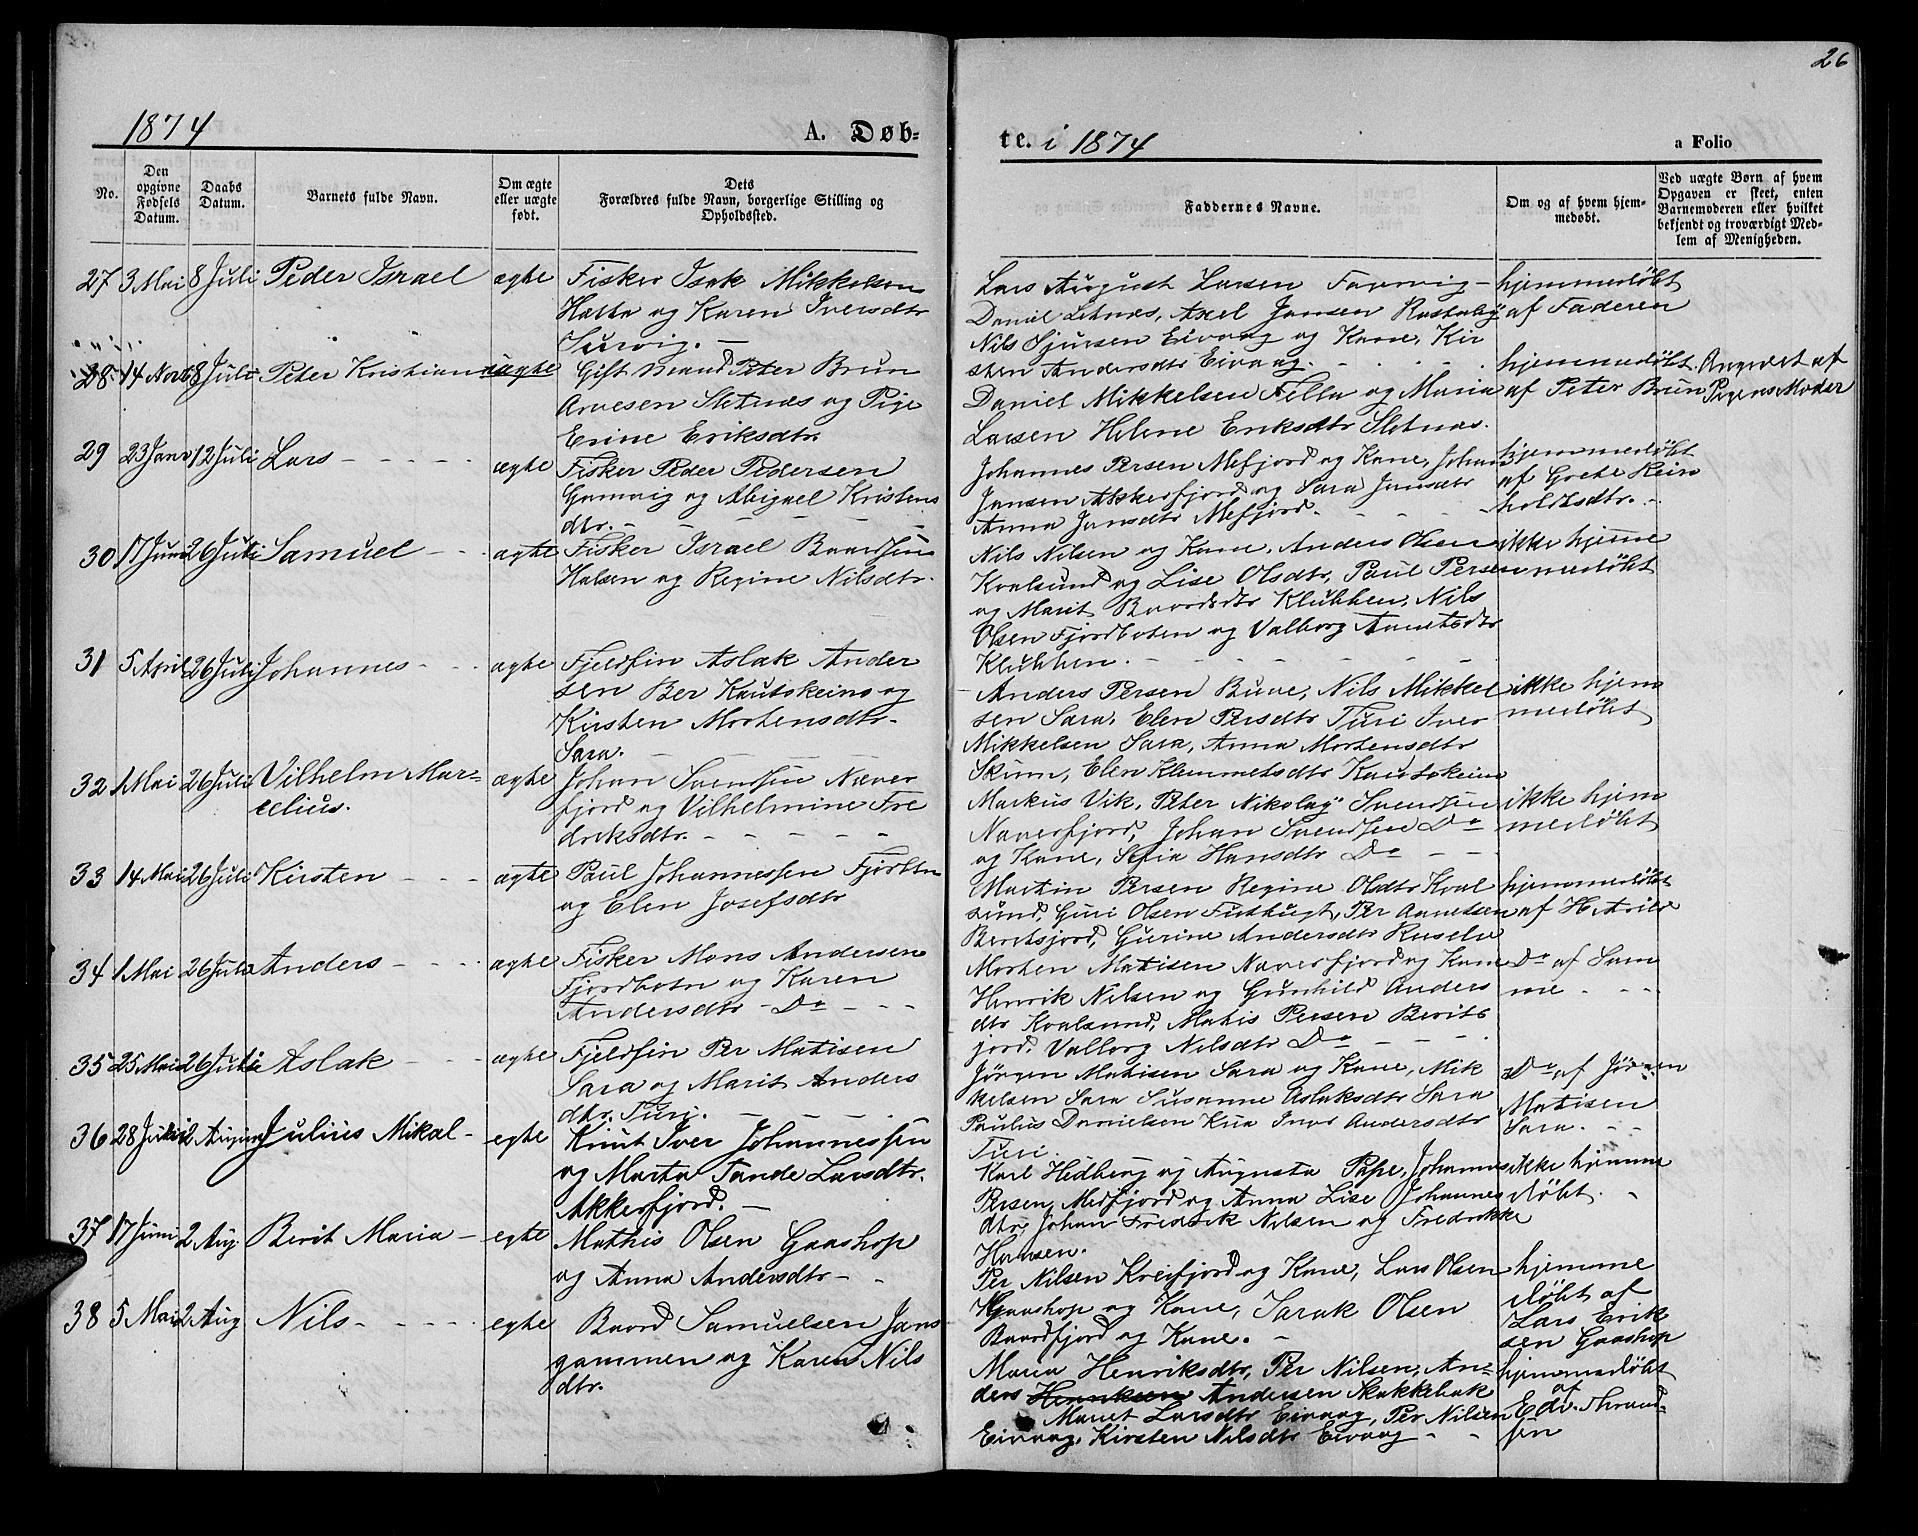 26
1874
A. Døb-
te. i 1874
a Folio
No.
Den opgivne Fødsels Datum.
Daabs Datum.
Barnets fulde Navn.
Om ægte eller uægte født.
Dets Forældres fulde Navn, borgerlige Stilling og Opholdssted.
Faddernes Navne.
Om og af hvem hjemmedøbt.
Ved uægte Børn af hvem Opgaven er skeet, enten Barnemoderen eller hvilket bekjendt og troværdigt Medlem af Menigheden.
27 3 Mai 8 Juli Peder Israel ægte Fisker Isak Mikkelsen
Hætta og Karen Iversdtr
Lars August Larsen
Daniel Sletnæs, Axel Jansen
Nils Sjursen Eivaag og Kone, Kir
sten Andersdtr Eivaag.
hjemmedøbt
af Faderen
28 14 8 Juli Peter Kristian uægte Gift Mand Peter Brun
Arnesen Sletnæs og Pige
Erine Eriksdtr.
Daniel Mikkelsen Fella og Maria
Larsen Helene Eriksdtr Sletnæs.
hjemmedøbt
af Peter Brun
Angivet af
Pigens Moder
29 23 Janr 12 Juli Lars - - - - ægte Fisker Peder Pedersen
Gamvig og Abigael Kristens
dtr. - - - - -
Johannes Persen Mefjord og Kone, Johan
Jansen Akkerfjord og Sara Jansdtr
Anna Jansdtr Mefjord. - - -
hjemmedøbt
af Grete Rein
holdtsdtr. -
30 17 Juni 26 Juli Samuel - - ægte Fisker Israel Baardsen
Halsen og Regine Nilsdtr.
Nils Nilsen og Kone, Anders Olsen
Kvalsund og Lise Olsdtr, Paul Persen
og Marit Baardsdtr Klubben, Nils
Olsen Fjordboten og Valborg
Klubben. - - - - -
ikke hjemme
medøbt
31 5 April 26 Juli Johannes - - ægte Fjeldfin Aslak Ander
sen Bær Kautokeino og
Kirsten Mortensdtr
Sara. - - -
Anders Persen Buve, Nils Mikkel
sen Sara, Elen Persdtr Turi Iver
Mikkelsen Sara, Anna Mortensdtr
Skum, Elen Klemmetsdtr Kautokeino
ikke hjem
medøbt
32 1 Mai 26 Juli Vilhelm Mar=
celius.
ægte Johan Svendsen Næver
fjord og Vilhelmine Fre
driksdtr. - - - -
Markus Vik, Peter Nikolay Svendsen
Næverfjord, Johan Svendsen Do
og Kone, Sofia Hansdtr Do - -
ikke hjem
medøbt
33 14 Mai 26 Juli Kirsten - - - ægte Paul Johannessen Fjordbtn
og Elen Josefsdtr
Martin Persen Regine Olsdtr Kval
sund, Guri Olsen Per
Beritsjord, Gurine Andersdtr
hjemmedøbt
af
34 1 Mai 26 Juli Anders - - - ægte Fisker Mons Andersen
Fjordbotn og Karen
Andersdtr - Do - - -
Morten Matisen Næverfjord og Kone
Henrik Nilsen og Gunhild Anders
dtr Kvalsund, Matis Persen Berits
jord, Valborg Nilsdtr Do - - -
Do af Sam
me - - -
35 25 Mai 26 Juli Aslak - - - ægte Fjeldfin Per Matisen
Sara og Marit Anders
dtr. Turi. - - -
Jørgen Matisen Sara og Kone, Mik
kelsen Sara Susanne Aslaksdtr Sara
Paulus Danielsen Andersdtr
Turi.
Do af Jørgen
Matisen
Sara. - -
36 28 2 Julius Mikal - egte Knut Iver Johannessen
og Marta Tande Larsdtr.
Akkerfjord. -
Karl Hedberg og Augusta Pape, Johannes
Persen, Mefjord og Anna Lise Johannes
dtr, Johan Fredrik Nilsen og Fredrikke
Hansen.
ikke hjemme
døbt. -
37 17 Juni 2 Aug. Berit Maria - egte Mathis Olsen Gaashop
og Anna Andersdtr - -
Per Nilsen Kreifjord og Kone, Lars Olsen
Gaashop og Kone, Sarak Olsen
Baardfjord og Kone. -
hjemme
døbt af
Lars Erik
sen Gaashop
38 5 Mai 2 Aug Nils - - - - egte Baard Samuelsen Jans
gammen og Karen Nils
dtr.
Maria Henriksdtr, Per Nilsen, An=
ders Henriksen Andersen Skakkebak
Marit Larsdtr Eivaag, Per Nilsen
Eivaag, Kirsten Nilsdtr Eivaag - -
hjemmedøbt
af
Edv. Thrond=
sen